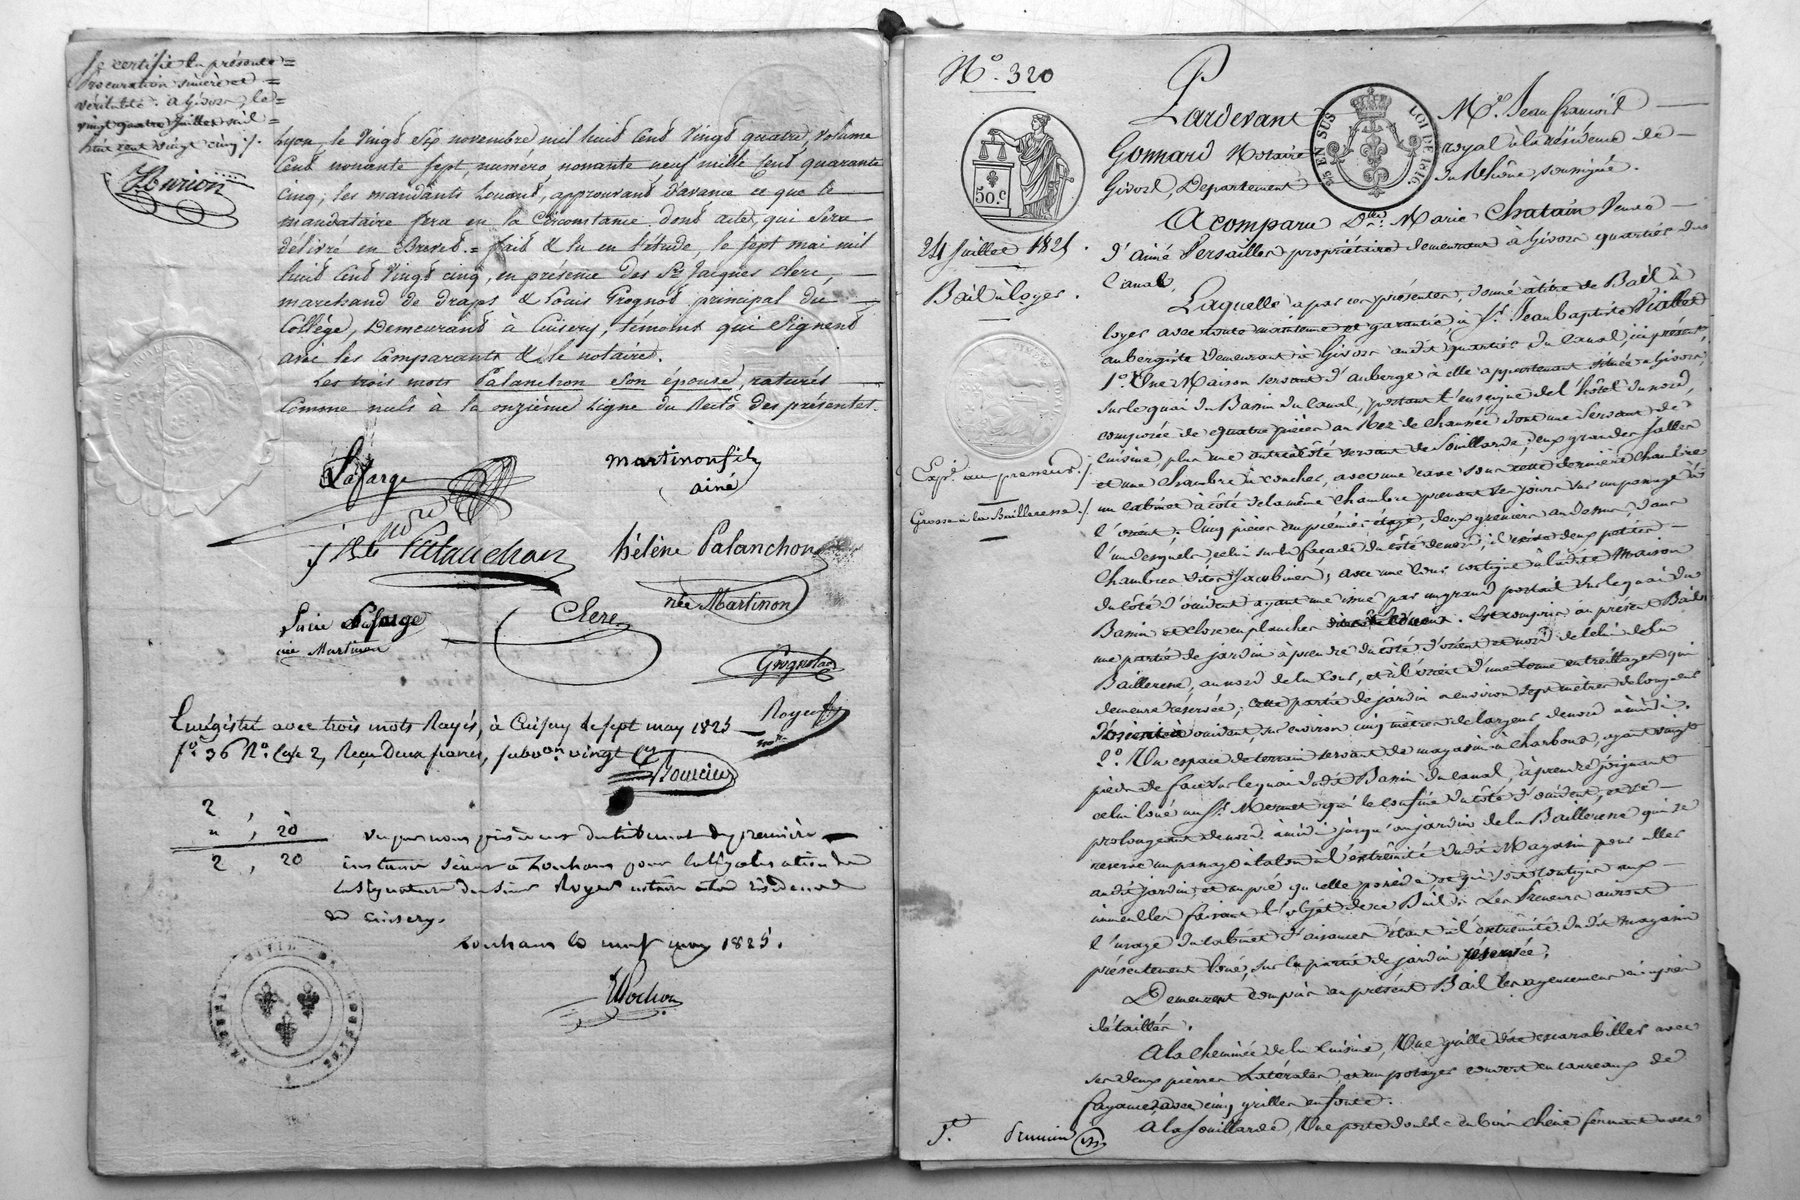 Je certifie la présente =
Procuration sincère et =
véritable. a Givors, le =
vingt quatre Juillet mil =
huit cent vingt cinq ./.
Lyon, le Vingt Six novembre mil huit cent Vingt quatre, volume
Cent nonante sept, numéro, nonante neuf mille Cent quarante
cinq; les mandants Louant, approuvant d'avance ce que le
mandataire fera en la Circonstance, dont acte, qui Sera
délivré en Brevet. = fait & lu en l'étude, le sept mai mil
huit cent Vingt cinq, en présence des Srs Jacques Clerc,
marchand de draps & Louis Grognot principal du
Collège, Demeurant à Cuisery, témoins qui Signent
avec les Comparants & le notaire.
Les trois mots Palanchon son épouse, raturés
Comme nuls à la onzième Ligne du Recto des présentes.
Lafarge
martinon fils
ainé
Palanchon
hélène Palanchon
née Martinon
Lafarge
née Martinon
Clerc
Grognot
Enrégistré avec trois mots Rayés, à Cuisery le sept may 1825
fo 36 Ro Case 2, Reçu Deux francs, subvon vingt
2
" , 20
2 , 20
Vu par nous président du tribunal de première
instance séant à Louhans pour la légalisation de
la signature du sieur Royer notaire à la résidence
de Cuisery.
Louhans le neuf may 1825.
TRIBUNAL CIVIL DE LOUHANS
No. 320
50.c
25 EN SUS
LOI DE 1816
24 Juillet 1825
Bail à loyer.
Expn au preneur ./.
Grosse à la Bailleresse ./.
Pardevant Me Jean François
Gonnard Notaire royal à la résidence de
Givors, Département du Rhône, soussigné.
A comparu De Marie Chatain Veuve
d'Aimé Versailles propriétaire demeurant à Givors quartier du
Canal,
Laquelle a par ces présentes, donné à titre de Bail à
loyer avec toute maintenue et garantie, à Sr. Jean Baptiste Viallet
aubergiste demeurant à Givors au dit quartier du Canal, ici présent,
1o Une Maison servant d'auberge à elle appartenant située à Givors,
sur le quai du Bassin du Canal, portant l'enseigne de l'hôtel du nord,
composée de quatre pièces au Rez de chaussée dont une servant de
cuisine, plus une autre à côté servant de Souillarde, deux grandes salles
et une Chambre à coucher, avec une cave sous cette dernière Chambre
un cabinet à côté de la même Chambre prenant ses jours sur un passage à
l'orient; Cinq pièces au premier étage, deux greniers au dessus, dans
l'un desquels celui sur la façade du côté de nord, il existe deux petites
Chambres dites Jacobines; avec une Cour contigue à la dite Maison
du côté d'occident ayant une issue par un grand portail sur le quai du
Bassin et close en planches. Est compris au présent Bail
une partie de jardin à prendre du côté d'orient et nord de celui de la
Bailleresse, au nord de la Cour, et à l'orient d'une tonne en treillages qui
demeure réservée; cette partie de jardin a environ sept mètres de longueur
d'orient à occident, sur environ cinq mètres de largeur de nord à midi.
2o. Un espace de terrain servant de magasin à Charbons, ayant vingt
pieds de face sur le quai du dit Bassin du Canal, à prendre joignant
celui loué au Sr. Mermet qui le confine du côté d'occident, et se
prolongeant de nord à midi jusqu'au jardin de la Bailleresse qui se
réserve un passage à talon à l'extrêmité du dit Magasin pour aller
au dit jardin et au pré qu'elle possède et qui sont contigus aux
immeubles faisant l'objet de ce Bail. Les Preneurs auront
l'usage du Cabinet d'aisances étant à l'extrêmité du dit magasin
présentement loué, sur la partie de jardin réservée.
Demeurent compris au présent Bail les agencemens ci après
détaillés.
A la Cheminée de la Cuisine, Une grille dite escarabilles avec
ses deux pierres Latérales, et un potager couvert en carreaux de
fayance, avec cinq grilles en fonte.
A la Souillarde, Une porte double en bois Chêne fermant avec